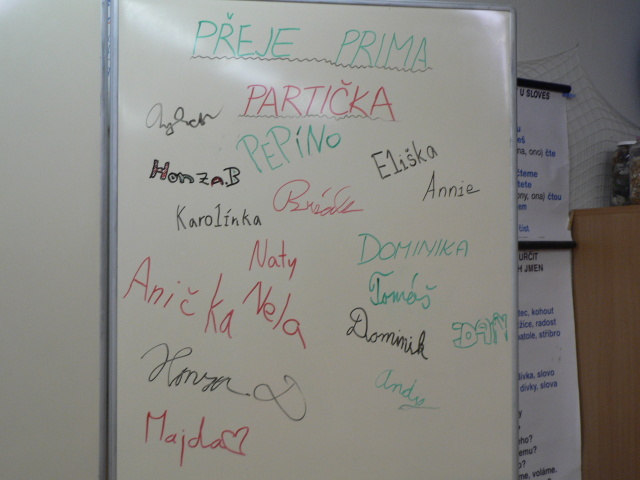 PŘEJE PRIMA
PARTIČKA
PEPÍNO
Eliška
Honza.B
Annie
Karolínka
Naty
DOMINIKA
Anička
Nela
Tomáš
Dominik
DAN
Honza.
Andy
Majda
U SLOVES
na, ono) čte
čteme
ony, ona) čtou
URČIT
H JMEN
tec, kohout
žice, radost
patole, stříbro
dívka, slovo
dívky, slova
ho?
emu?
o?
me, voláme.